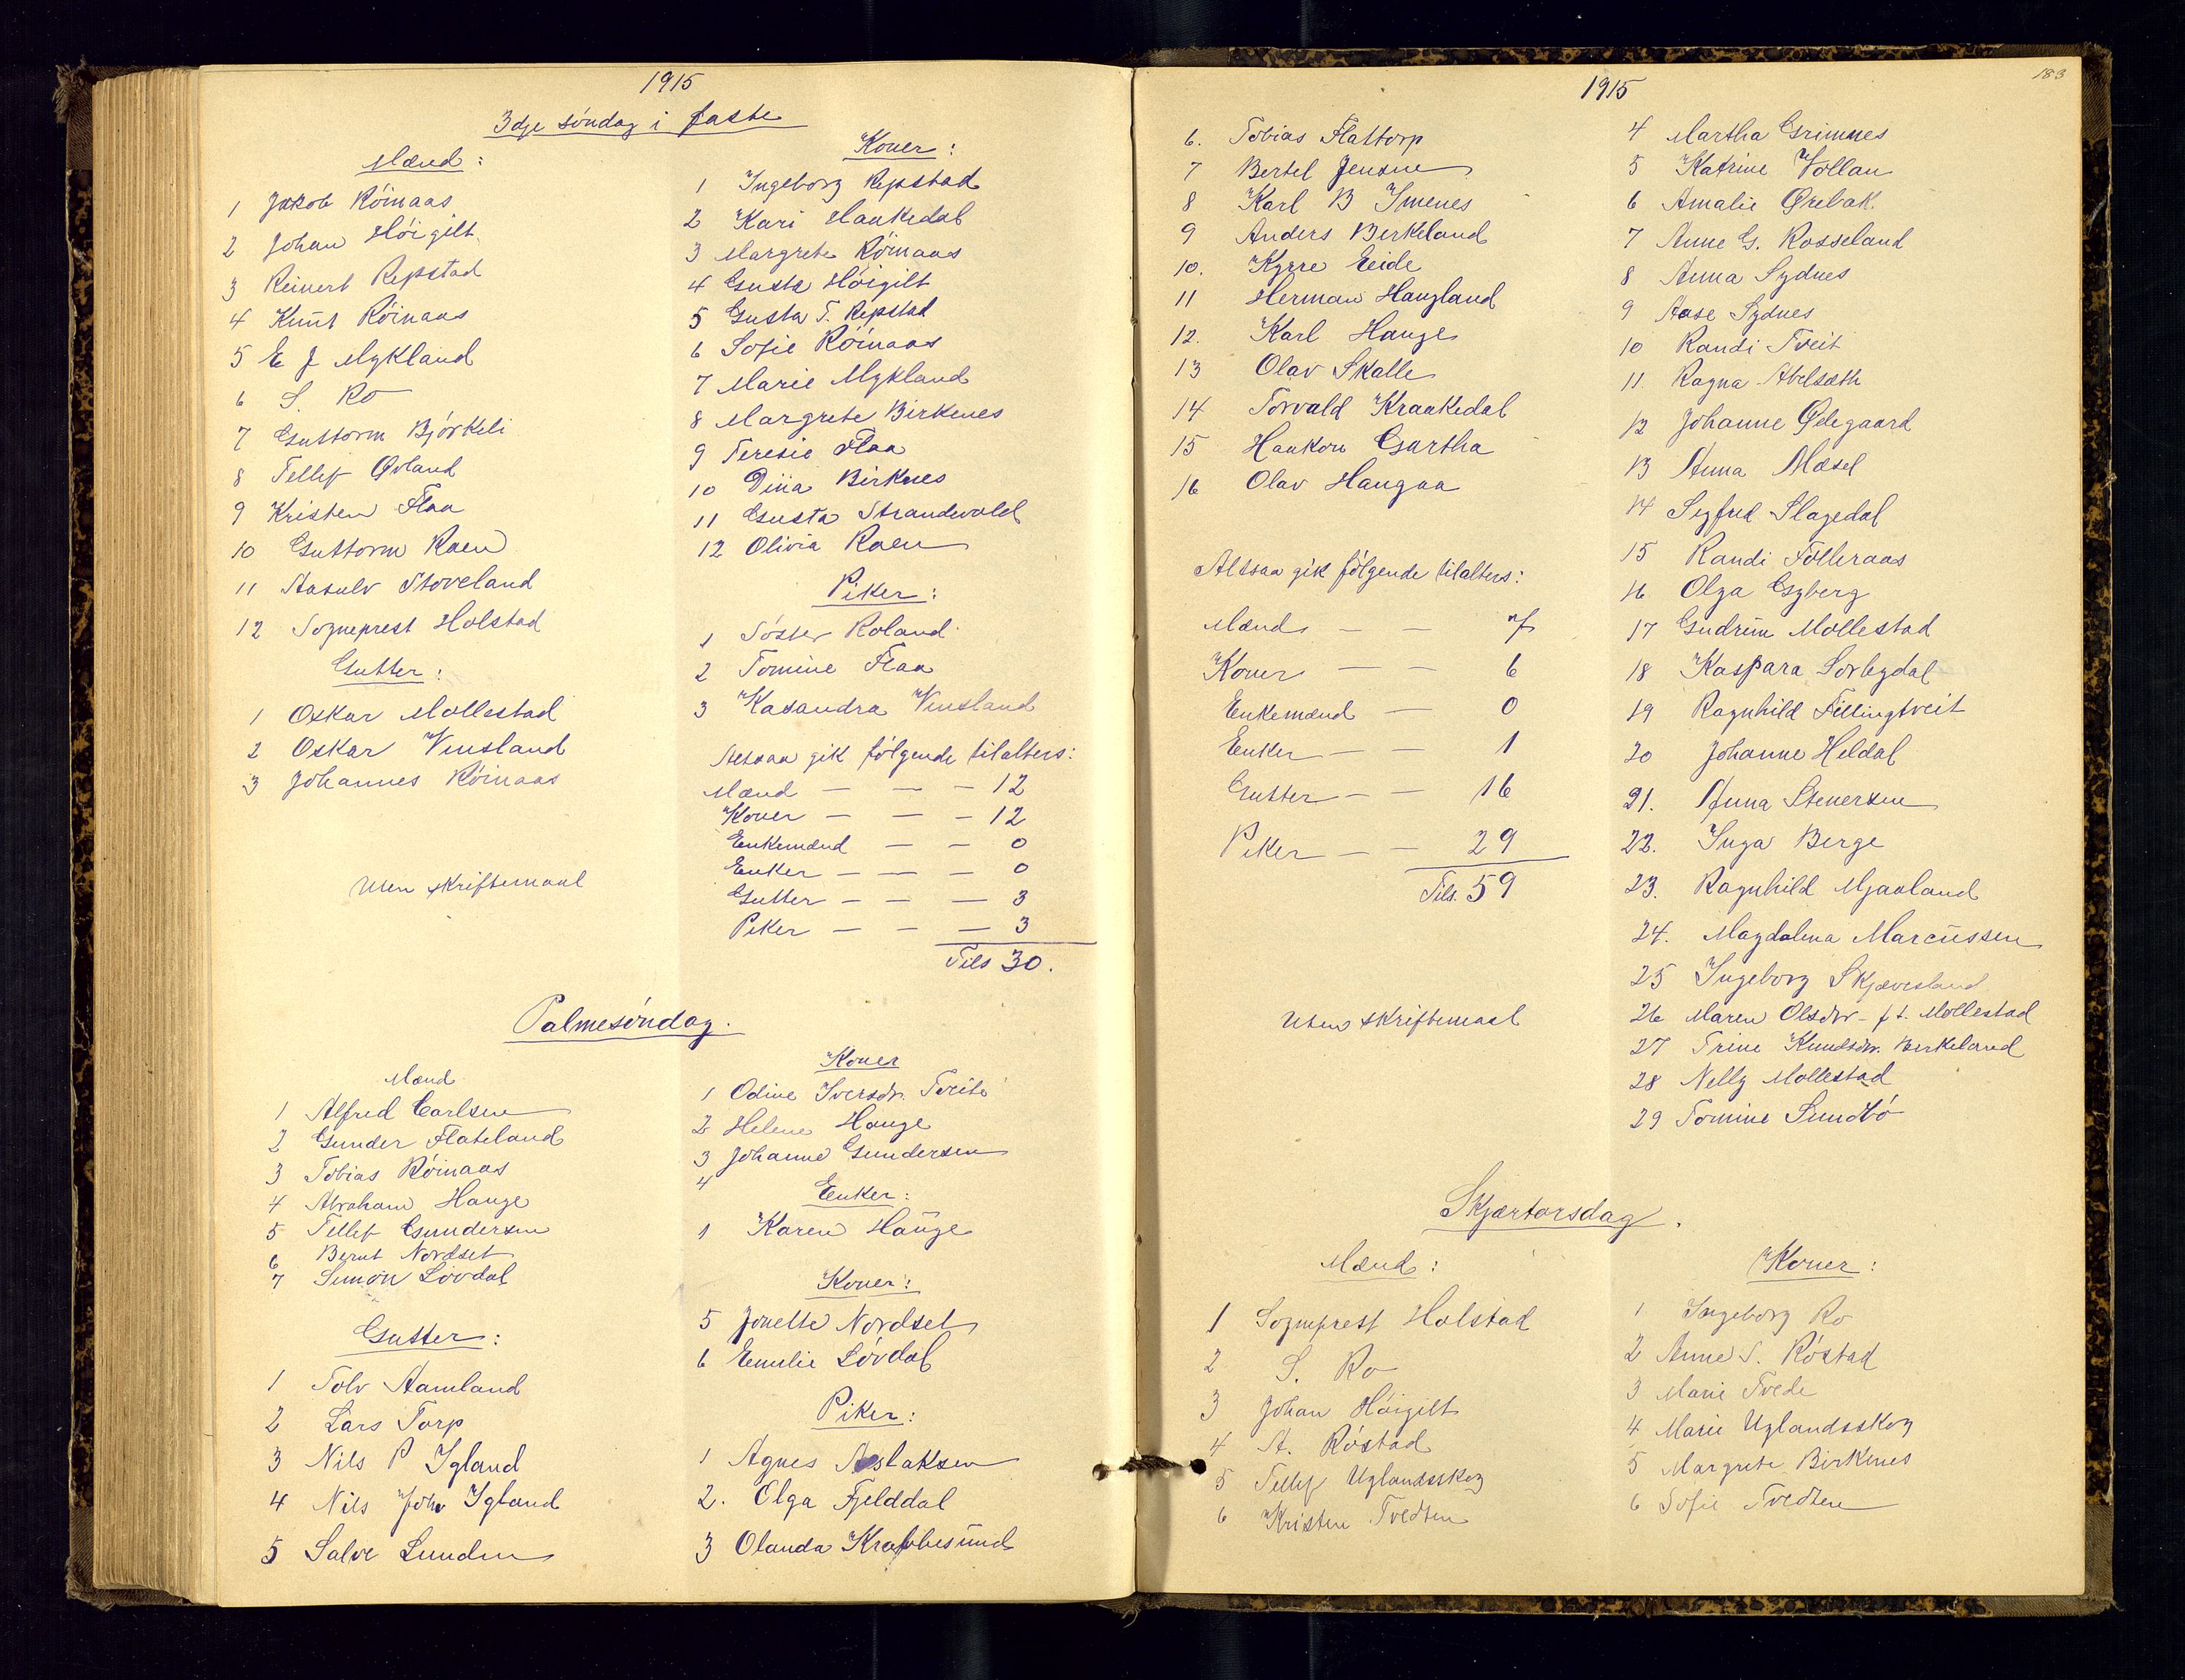 1915
3dje søndag i faste
Mænd:
1 Jakob Röinaas
2 Johan Höigilt
3 Reinert Repstad
4 Knut Röinaas
5 E J Mykland
6 S. Ro
7 Guttorm Björkeli
8 Tellef Øvland
9 Kristen Flaa
10 Guttorm Raen
11 Aasulv Stoveland
12 Sogneprest Holstad
Gutter:
1 Oskar Mollestad
2 Oskar Vinsland
3 Johannes Röinaas
Uten skriftemaal
Koner:
1 Ingeborg Repstad
2 Kari Haakedal
3 Margrete Röinaas
4 Gusta Höigilt
5 Gusta T. Repstad
6 Sofie Röinaas
7 Marie Mykland
8 Margrete Birkenes
9 Teresie Flaa
10 Dina Birknes
11 Gusta Strandvold
12 Olivia Raen
Piker:
1 Söster Roland
2 Tomine Flaa
3 Kasandra Vinsland
Altsaa gik følgende tilalters:
Mænd — — — 12
Koner — — — 12
Enkemænd — — 0
Enker — — — 0
Gutter — — — 3
Piker — — — 3
Tils 30.
Palmesøndag.
Mænd
1 Alfred Carlsen
2 Gunder Flateland
3 Tobias Röinaas
4 Abraham Hauge
5 Tellef Gundersen
6 Bernt Nordset
7 Simon Lövdal
Gutter:
1 Tolv Aamland
2 Lars Torp
3 Nils P Igland
4 Nils Joh Igland
5 Salve Lunden
Koner
1 Odine Iversdr. Tveite
2 Helene Hauge
3 Johanne Gundersen
4
Enker:
1 Karen Hauge
Koner:
5 Jonette Nordset
6 Emilie Lövdal
Piker:
1 Agnes Aslaksen
2. Olga Fjelddal
3 Olanda Krabbesund
183
1915
6. Tobias Flattorp
7 Bertel Jensen
8 Karl B Imenes
9 Anders Birkeland
10. Kyrre Eeide
11 Herman Haugland
12. Karl Hauge
13 Olav Skalle
14 Torvald Kraakedal
15 Haakon Gartha
16 Olav Haugaa
Altsaa gik følgende tilalters:
Mænd — — 7
Koner — — 6
Enkemænd — 0
Enker — — 1
Gutter — — 16
Piker — — 29
Tils. 59
Uten skriftemaal
4 Martha Grimnes
5 Katrine Vollan
6 Amalie Ørebak
7 Anne G. Rosseland
8 Anna Sydnes
9 Aase Sydnes
10 Randi Tveit
11. Ragna Abelseth
12 Johanne Ødegaard
13 Anna Mæsel
14 Sigfrid Slagedal
15 Randi Folleraas
16 Olga Egberg
17 Gudrun Mollestad
18 Kaspara Sorbydal
19 Ragnhild Fillingtveit
20 Johanne Heldal
21. Anna Stenersen
22. Inga Berge
23. Ragnhild Mjaaland
24. Magdalena Marcussen
25 Ingeborg Skjævesland
26 Maren Olsdtr. f t. Mollestad
27 Trine Knudsdr. Birkeland
28 Nelly Mollestad
29 Tomine Sundbö
Skjærtorsdag.
Mænd:
1 Sogneprest Holstad
2 S. Ro
3 Johan Höigilt
4 A. Röstad
5 Tellef Uglandsskog
6 Kristen Tvedten
Koner:
1 Ingeborg Ro
2 Anne S. Röstad
3 Marie Tvede
4 Marie Uglandsskog
5 Margrete Birkenes
6 Sofie Tvedten